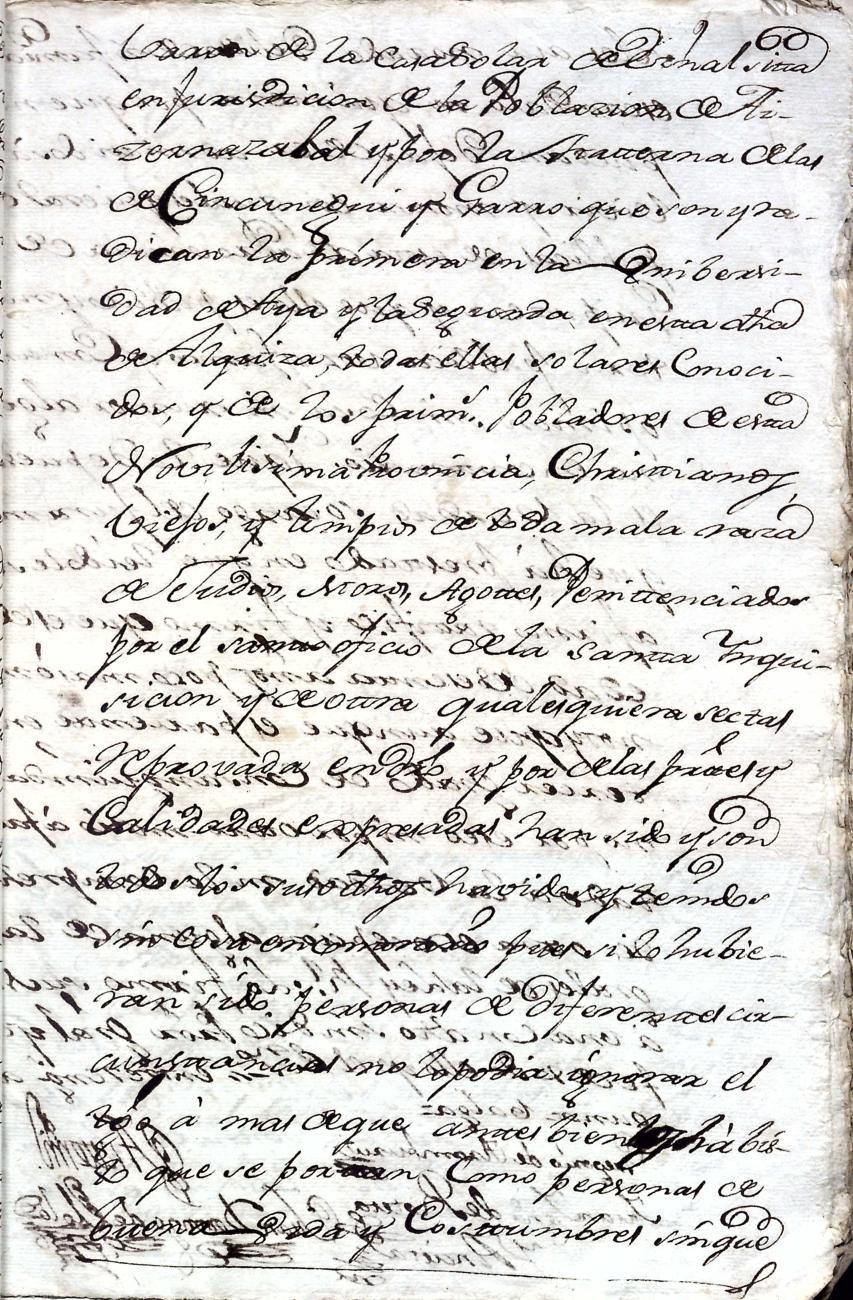 60
Varon de la casa solar de Bernal sitta
en Jurisdicion de la Poblazion de Ai-
zernazabal y por la Matterna de las
de Cincunegui y Garro que son y ra-
dican la primera en la Unibersi-
dad de Aya y la Segunda en esta dha
de Alquiza, todas ellas solares Conoci-
dos, y de los prim.s Pobladores de esta
Novilisima Provincia, Christianos
Viejos, y limpios de toda mala raza
de Judios, Moros, Agottes, Penittenciados
por el santto oficio de la Santta Ynqui-
sicion y de ottra qualesquiera sectas
reprovadas en dro, y por de las prttes y
Calidades expresadas han sido y son
todos los suso dhos havidos y tenidos
sin cosa en contrario pues si lo hubie-
ran sido personas de diferentes cir-
cunstancias no lo podia ignorar el
tgo à mas de que antes bien los hà bis-
to que se portan Como personas de
buena Vida y Costtumbres sin que